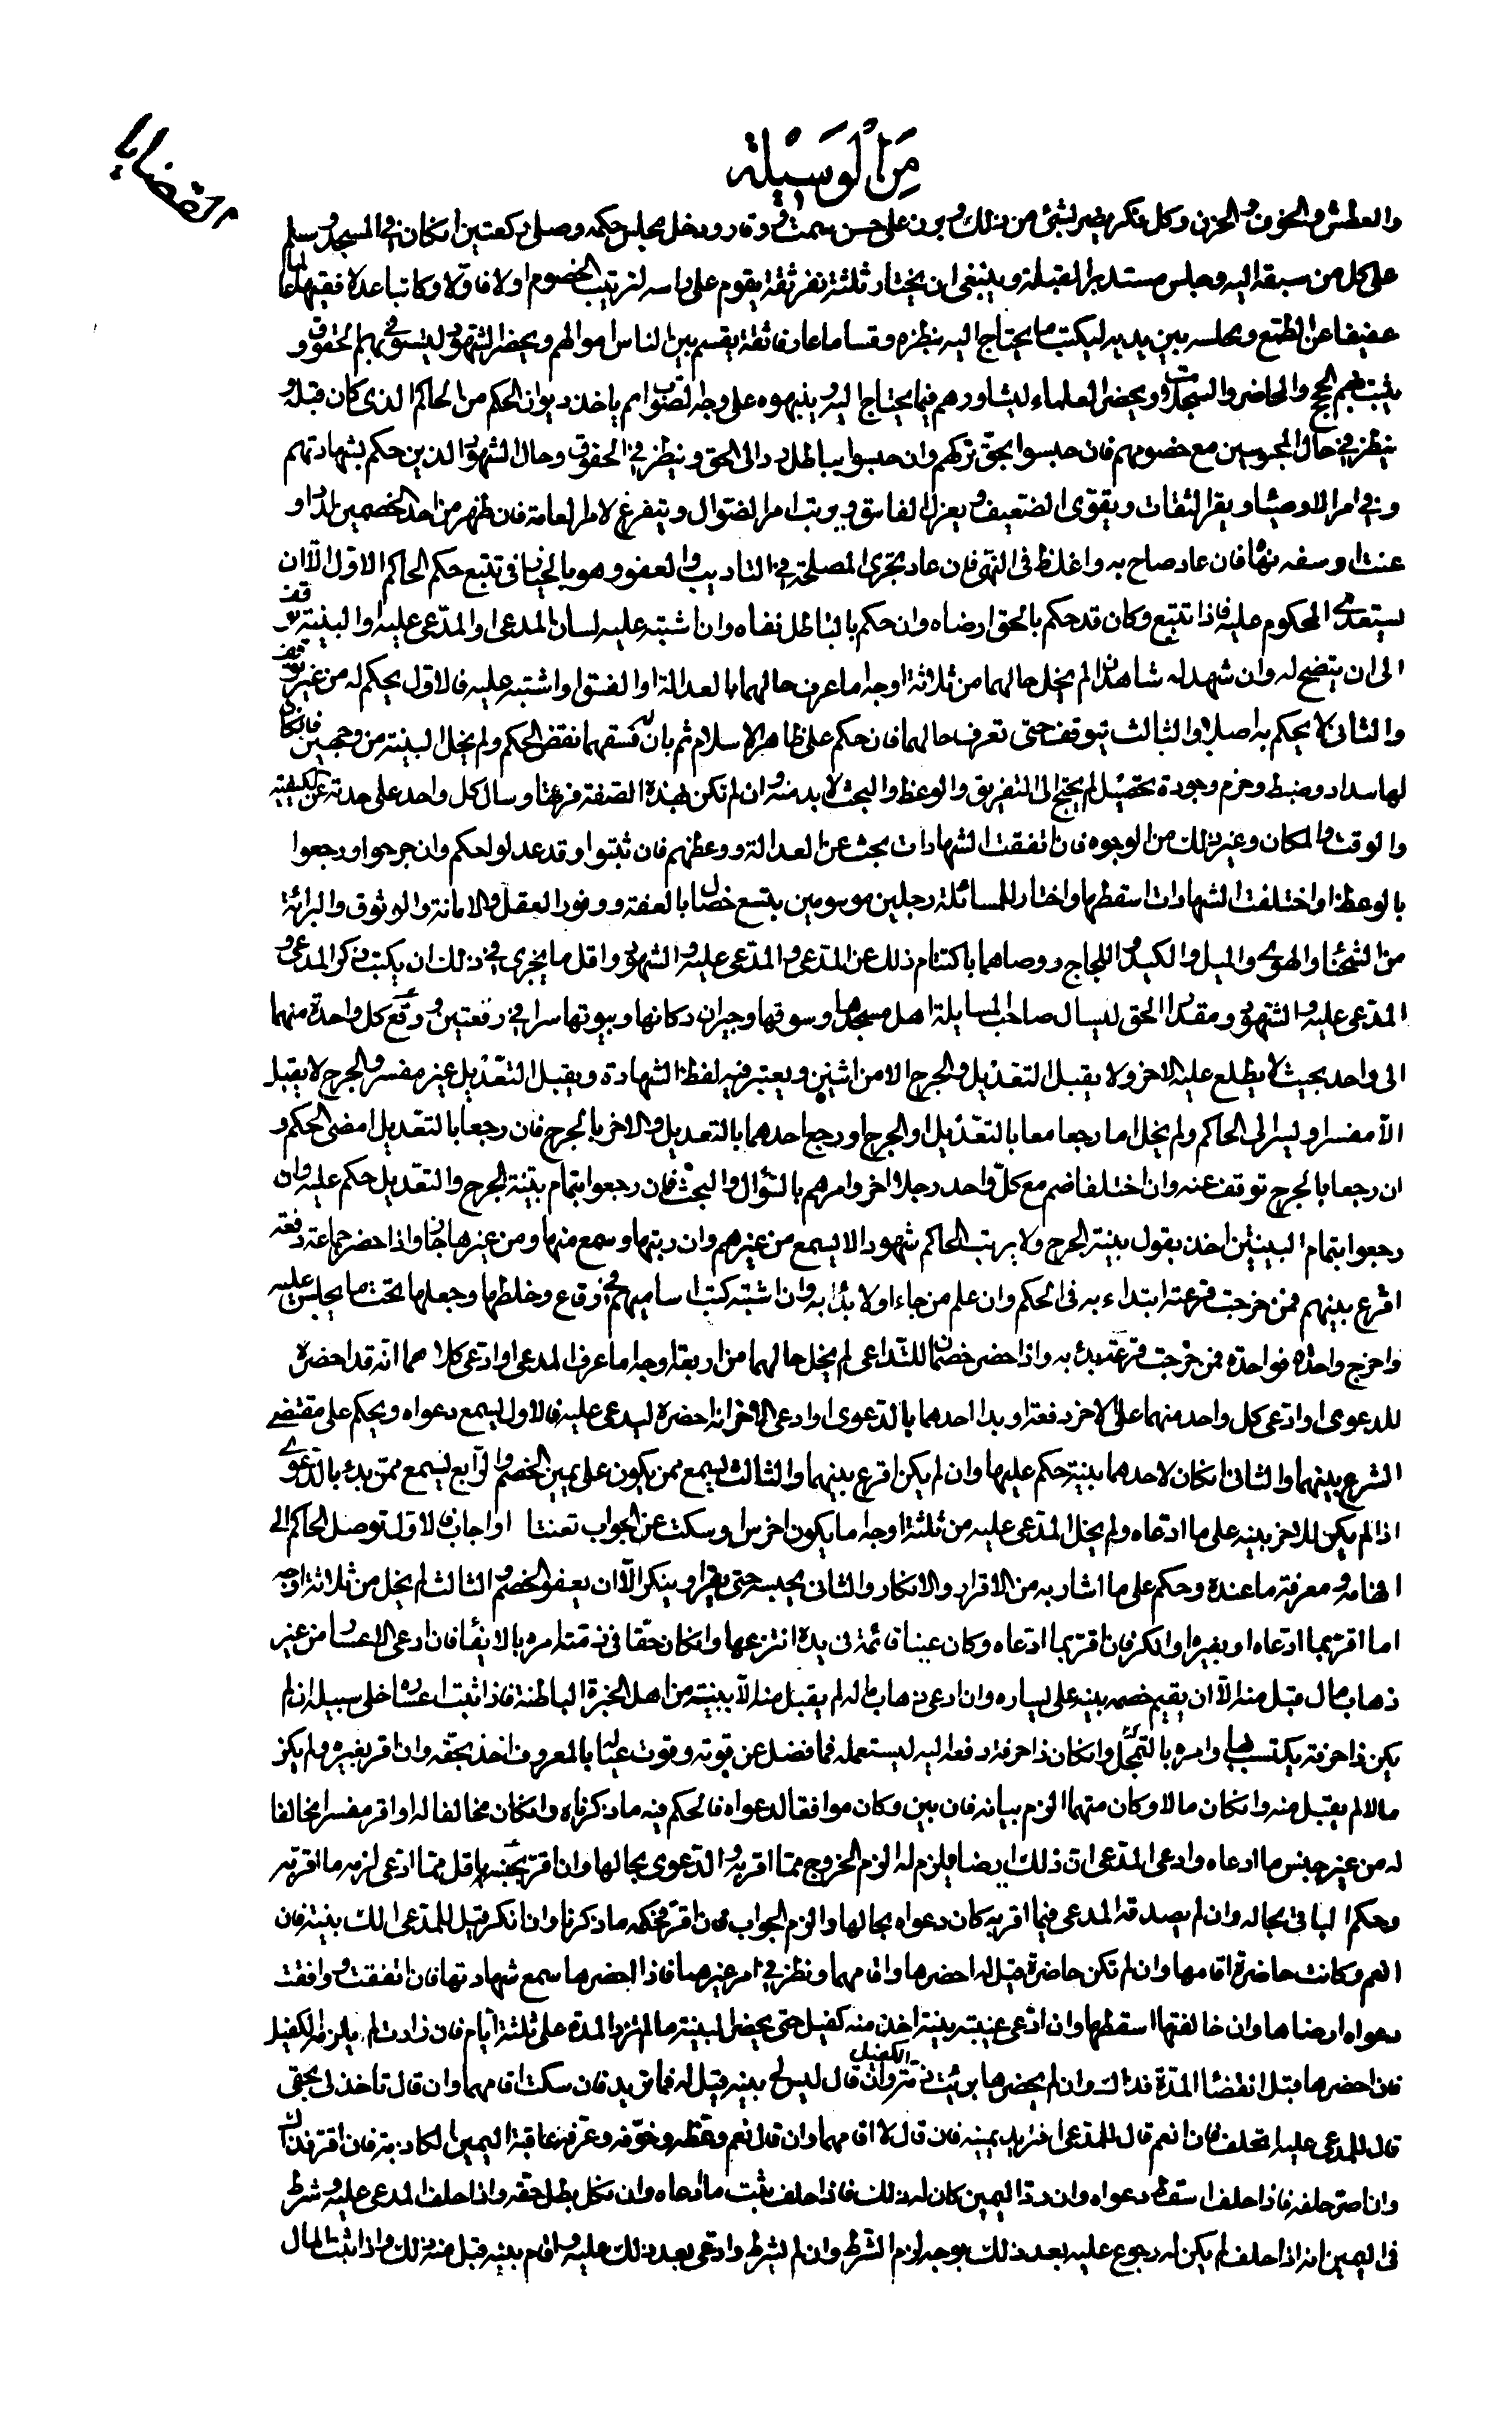 مِنَ الْوَسِيْلَة
القضايا
والعطش والخوف والحزن وكل فكر يضر بشئ من ذلك وبرز على حسن سمت ووقار ودخل مجلس حكمه وصلى ركعتين ان كان في المسجد وسلم
على كل من سبقه اليه وجلس مستدبر القبلة وينبغي ان يختار ثلثة نفر ثقة يقوم على راسه لترتيب الخصوم اولا فاولا وكاتبا عدلا فقيها عالما
عفيفا عن الطمع ويجلسه بين يديه ليكتب ما يحتاج اليه بنظره وقساما عارفا ثقة يقسم بين الناس اموالهم ويحضر الشهود ليستوفي بهم الحقوق و
يثبت بهم الحجج والمحاضر والسجلات ويحضر العلماء ليشاورهم فيما يحتاج اليه وينبهوه على وجه الصواب ثم ياخذ ديوان الحكم من الحاكم الذي كان قبله و
ينظر في حال المحبوسين مع خصومهم فان حبسوا بحق تركهم وان حبسوا بباطل رد الى الحق وينظر في الحقوق وحال الشهود الذين حكم بشهادتهم
وفي امر الاوصياء ويقر الثقات ويقوى الضعيف ويعزل الفاسق ويرتب امر الضوال ويتفرغ لامر العامة فان ظهر من احد الخصمين لدد او
عنت او سفه نهاه فان عاد صاح به واغلظ في النهى فان عاد تحرى المصلحة في التاديب والعفو وهو بالخيار في تتبع حكم الحاكم الاول الّا ان
يستعدى المحكوم عليه فاذا تتبع وكان قد حكم بالحق امضاه وان حكم بالباطل نفاه وان اشتبه عليه لسان المدعى او المدّعى عليه او البينة توقف
الى ان يتضح له وان شهد له شاهدان لم يخل حالهما من ثلاثة اوجه اما عرف حالهما بالعدالة او الفسق او اشتبه عليه فالاول يحكم له من غير توقف
والثاني لا يحكم به اصلا والثالث يتوقف حتى تعرف حالهما فان حكم على ظاهر الاسلام ثم بان له فسقهما نقض الحكم ولم يخل البينة من وجهين فان كان
لها سداد وضبط وحزم وجودة تحصيل لم يحتج الى التفريق والوعظ والبحث لا بد منه وان لم تكن بهذه الصفة فرقها وسال كل واحد على حدته عن الكيفية
والوقت والمكان وغير ذلك من الوجوه فان اتفقت الشهادات بحث عن العدالة ووعظهم فان ثبتوا وقد عدلوا حكم وان جرحوا ورجعوا
بالوعظ او اختلفت الشهادات اسقطها واختار للمسائلة رجلين موسومين بتسع خصال بالعفة ووفور العقل والامانة والوثوق والبرائة
من الشحناء والهوى والميل والكيد واللجاج ووصاهما باكتتام ذلك عن المدعى والمدّعى عليه والشهود واقل ما يجزى في ذلك ان يكتب ذكر المدعى و
المدعى عليه والشهود ومقدار الحق ليسال صاحب المسايلة اهل مسجدها وسوقها وجيران دكانها وبيوتها سرا في رقعتين ودفع كل واحدة منهما
الى واحد بحيث لا يطلع عليه الاخر ولا يقبل التعديل والجرح الا من اثنين ويعتبر فيه لفظ الشهادة ويقبل التعديل غير مفسر والجرح لا يقبل
الّا مفسرا وليسر الى الحاكم ولم يخل اما رجعا معا بالتعديل او الجرح او رجع احدهما بالتعديل والاخر بالجرح فان رجعا بالتعديل امضى الحكم و
ان رجعا بالجرح توقف عنه وان اختلفا ضم مع كل واحد رجلا اخر وامرهم بالسؤال والبحث فان رجعوا بتمام بيّنة الجرح والتعديل حكم عليه وان
رجعوا بتمام البينتين اخذ بقول بينة الجرح ولا يرتب الحاكم شهودا لا يسمع من غيرهم وان رتبها وسمع منها ومن غيرها جاز واذا حضر جماعة دفعة
اقرع بينهم فمن خرجت قرعته ابتداء به في الحكم وان علم من جاء اولا بدأ به وان اشتبه كتب اساميهم في رقاع وخلطها وجعلها تحت ما يجلس عليه
واخرج واحدة فواحدة فمن خرجت قرعته بدء به واذا حضر خصمان للتداعى لم يخل حالهما من اربعة اوجه اما عرف المدعى او ادعى كلاهما انه قد احضره
للدعوى او ادّعى كل واحد منهما على الاخر دفعة او بدا احدهما بالدعوى وادعى الاخر انه احضره ليدعى عليه فالاول يسمع دعواه ويحكم على مقتضى
الشرع بينهما والثاني ان كان لاحدهما بينة حكم عليها وان لم يكن اقرع بينهما والثالث يسمع ممن يكون على يمين الخصم والرابع يسمع ممّن بدء بالدعوى
اذا لم يكن للاخر بينه على ما ادعاه ولم يخل المدّعى عليه من ثلثة اوجه اما يكون اخرس او سكت عن الجواب تعنتا او اجاب فالاول توصل الحاكم الى
افهامه ومعرفة ما عنده وحكم على ما اشار به من الاقرار والانكار والثاني يحبسه حتى يقر او ينكر الّا ان يعفو الخصم والثالث لم يخل من ثلاثة اوجه
اما اقرّ بما ادّعاه او بغيره او انكر فان اقرّ بما ادّعاه وكان عينا قائمة في يده انتزعها وان كان حقا في ذمته امره بالايفاء فان ادعى الاعسار من غير
ذهاب مال قبل منه الّا ان يقيم خصمه بينه على يساره وان ادعى ذهاب ماله لم يقبل منه الّا ببينة من اهل الخبرة الباطنة فاذا ثبت اعساره خلى سبيله ان لم
يكن ذا حرفة يكتسب بها وامره بالتمحل وان كان ذا حرفة دفعه اليه ليستعمله فما فضل عن قوته وقوت عياله بالمعروف اخذ بحقه وان اقر بغيره ولم يكن
مالا لم يقبل منه وان كان مالا وكان متهما الزم بيانه فان بين وكان موافقا لدعواه فالحكم فيه ما ذكرناه وان كان مخالفا له او اقر مفسرا مخالفا
له من غير جنس ما ادعاه وادعى المدّعى ان ذلك ايضا يلزم له الزم الخروج ممّا اقربه والدّعوى بحالها وان اقرّ بجنسه باقل ممّا ادّعى لزمه ما اقرّ به
وحكم الباقي بحاله وان لم يصدقه المدعى فيما اقر به كان دعواه بحالها والزم الجواب فان اقرّ فحكمه ما ذكرنا وان انكر قيل للمدّعى الك بينة فان
انعم وكانت حاضرة اقامها وان لم تكن حاضرة قيل له احضرها واقامهما ونظر في امر غيرهما فاذا احضرها سمع شهادتها فان اتفقت ووافقت
دعواه امضاها وان خالفتها اسقطها وان ادّعى غيبة بينة اخذ منه كفيل حتى يحضر البينة ما لم تزد المدة على ثلثة ايام فان زادت لم يلزمه الكفيل
فان احضرها قبل انقضاء المدّة فذاك وان لم يحضرها برئت ذمة الكفيل وان قال ليس لى بينه قيل له فما تريد فان سكت اقامهما وان قال تاخذ لى بحقى
قال للمدعى عليه اتحلف فان انعم قال للمدّعى افتريد يمينه فان قال لا اقامهما وان قال نعم وعظه وخوّفه وعرفه عاقبة اليمين الكاذبة فان اقر فذاك
وان اصرّ حلفه فاذا حلف اسقط دعواه وان ردّ اليمين كان له ذلك فاذا حلف يثبت ما ادعاه وان نكل بطل حقه واذا حلف المدعى عليه وشرط
في اليمين انه اذا حلف لم يكن له رجوع عليه بعد ذلك بوجه لزم الشرط وان لم يشرط وادعى بعد ذلك عليه واقام بينه قبل منه ذلك واذا ثبت المال